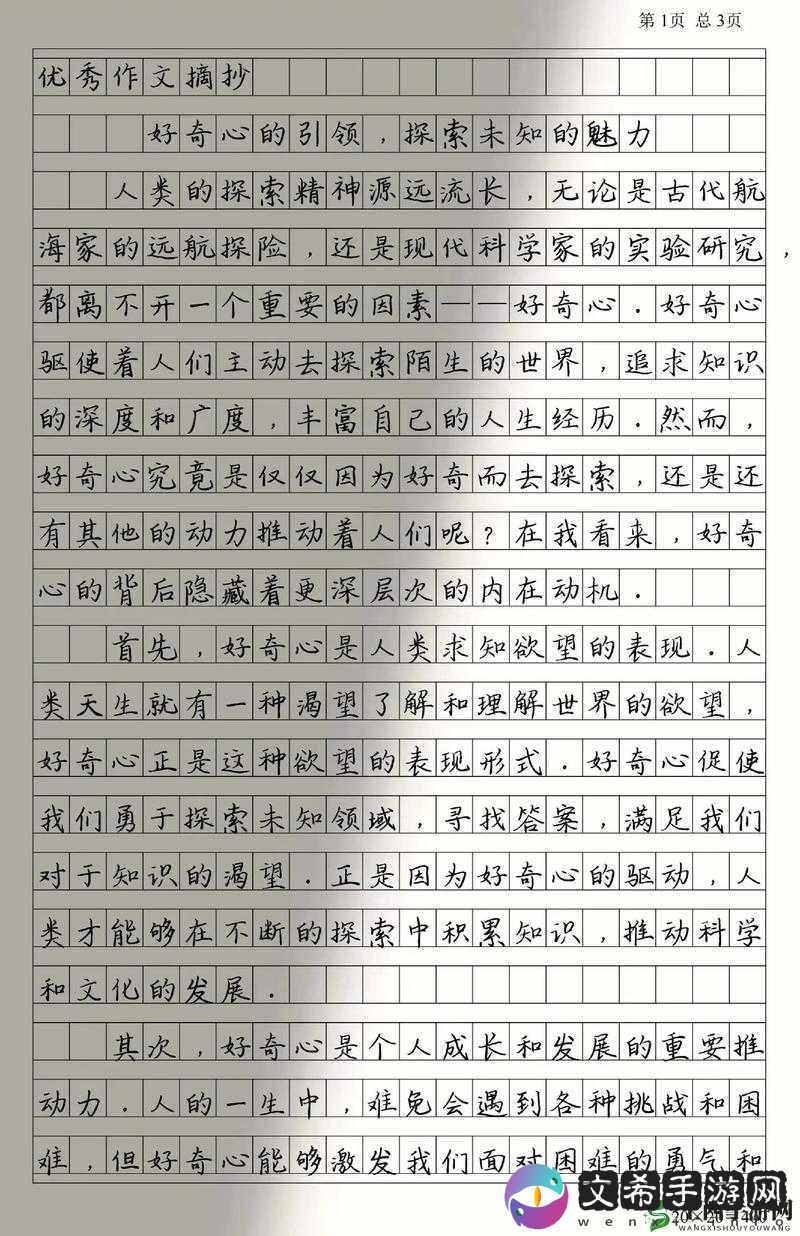 第1页 总3页
优秀作文摘抄
好奇心的引领，探索未知的魅力
人类的探索精神源远流长，无论是古代航
海家的远航探险，还是现代科学家的实验研究，
都离不开一个重要的因素——好奇心．好奇心
驱使着人们主动去探索陌生的世界，追求知识
的深度和广度，丰富自己的人生经历．然而，
好奇心究竟是仅仅因为好奇而去探索，还是还
有其他的动力推动着人们呢？在我看来，好奇
心的背后隐藏着更深层次的内在动机．
首先，好奇心是人类求知欲望的表现．人
类天生就有一种渴望了解和理解世界的欲望，
好奇心正是这种欲望的表现形式．好奇心促使
我们勇于探索未知领域，寻找答案，满足我们
对于知识的渴望．正是因为好奇心的驱动，人
类才能够在不断的探索中积累知识，推动科学
和文化的发展．
其次，好奇心是个人成长和发展的重要推
动力．人的一生中，难免会遇到各种挑战和困
难，但好奇心能够激发我们面对困难的勇气和
文希手游网
20×20=400
WANGXISHOUYOUWANG